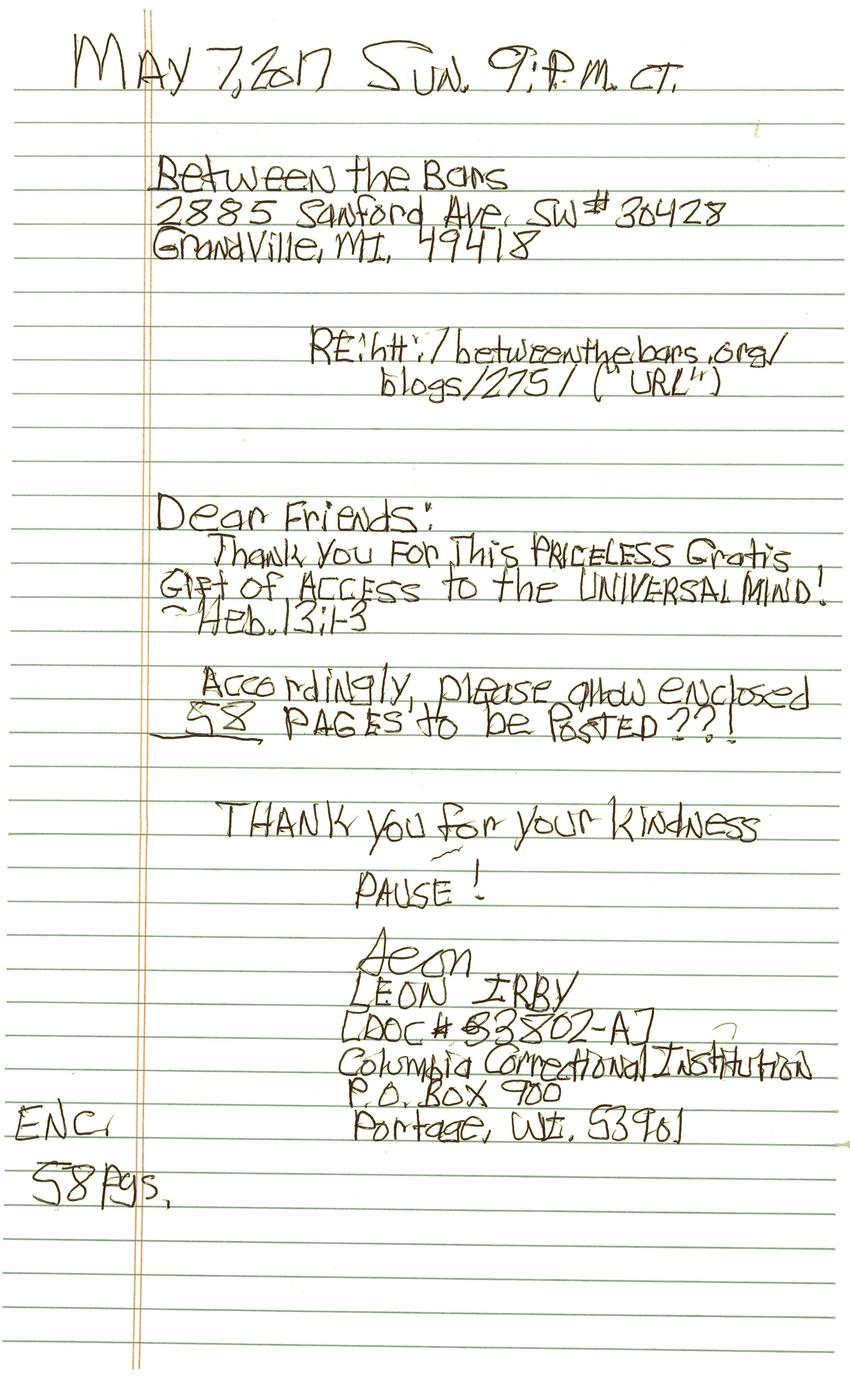 MAY 7, 2017 SUN. 9:P.M. CT.
Between the Bars
2885 Sanford Ave. SW # 30428
GrandVille, MI. 49418
RE: htt:/betweenthebars.org/
blogs/275/ ("URL")
Dear Friends:
Thank You For This PRICELESS Gratis
Gift of ACCESS to the UNIVERSAL MIND!
~Heb.13:1-3
Accordingly, please allow enclosed
58 PAGES to be POSTED??!
THANK you for your kindness
PAUSE!
Leon
LEON IRBY
[DOC # 83802-A]
Columbia Correctional Institution
P.O. BOX 900
Portage, WI. 53901
ENC.
58 pgs.